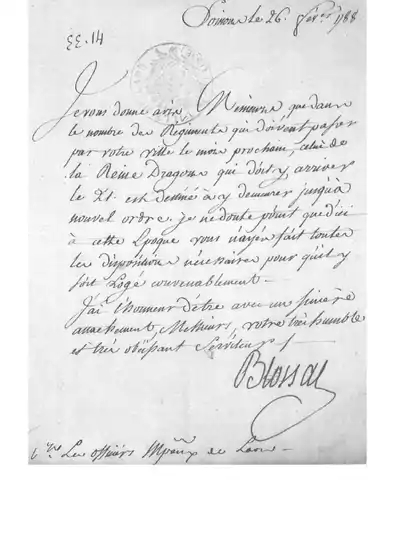 le 26. 1788
EE.14
Je vous donne avis, Messieurs, que dans
le nombre des Régiments qui doivent passer
par votre ville le mois prochain, celui de
la Reine Dragons qui doit y arriver
le 21. est destiné à y demeurer jusqu'à
nouvel ordre. je ne doute point que d'ici
à cette Epoque vous n'ayés fait toutes
les dispositions nécessaires pour qu'il y
soit Logé convenablement.
J'ai l'honneur d'être avec un sincère
attachement, Messieurs, votre très humble
et très obéissant Serviteur /
Blossac
Les officiers Mpaux de Laon